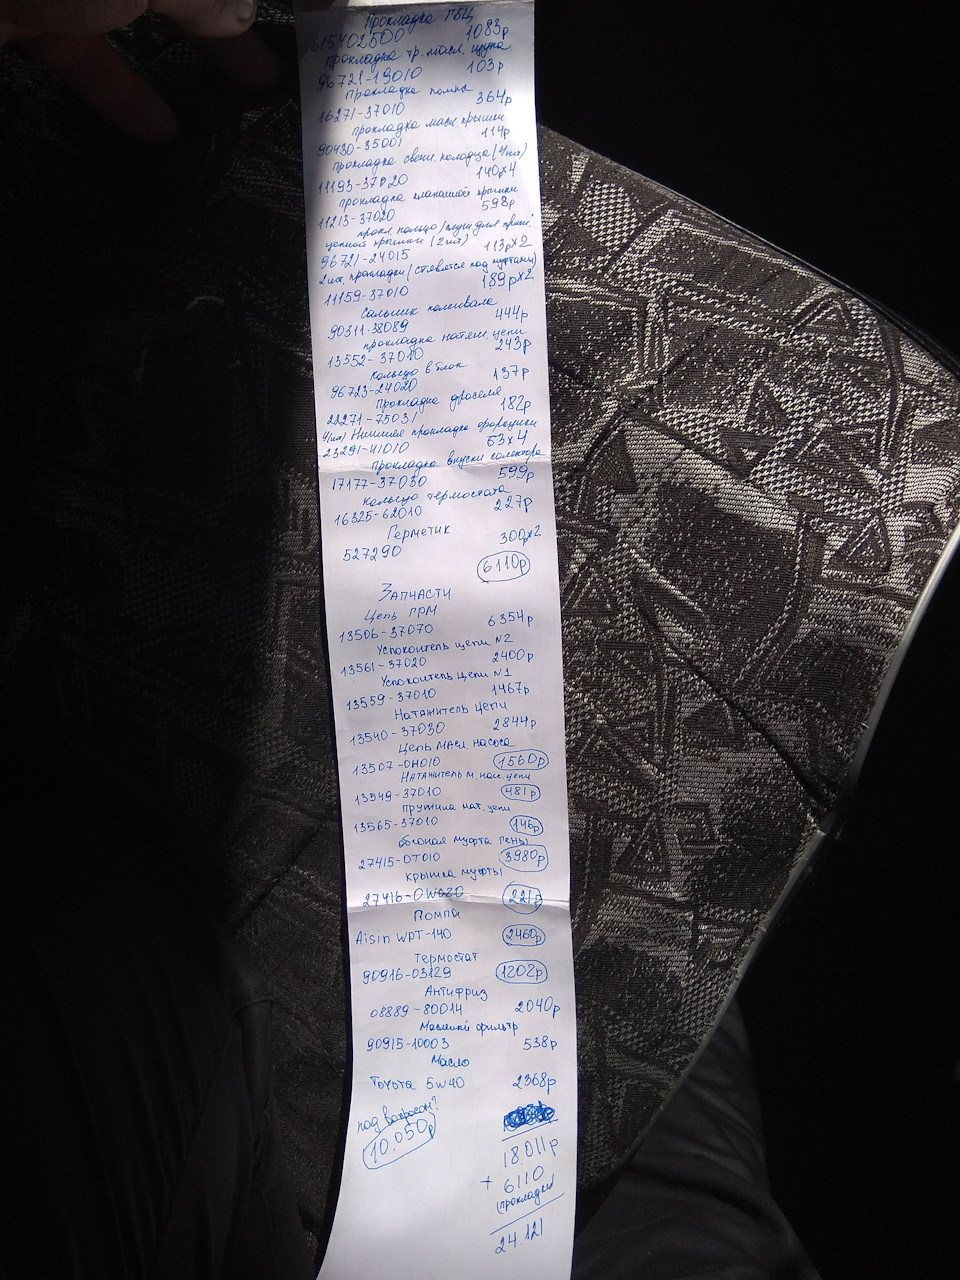 Прокладка ГБЦ
615402500 1083р
Прокладка тр. масл. щупа
96721-19010 103р
Прокладка помпы
16271-37010 364р
прокладка масл. крышки
90430-35001 114р
прокладка свечн. колодца (4шт)
11193-37020 140р×4
прокладка клапанной крышки
11213-37020 598р
прокл. кольцо
цепной крышки (2шт)
96721-24015 113р×2
2 шт. прокладки (ставятся под муфтами)
11159-37010 189р×2
Сальник коленвала
90311-38089 444р
прокладка натяж. цепи
13552-37010 243р
Кольцо в блок
96723-24020 137р
Прокладка дроселя
22271-75031 182р
4(шт) Нижняя прокладка форсунки
23291-41010 63×4
Прокладка впускн колектора
17177-37030 599р
Кольцо термостата
16325-62010 227р
Герметик
527290 300р×2
6110р
ЗАПЧАСТИ
Цепь ГРМ
13506-37070 6354р
Успокоитель цепи N2
13561-37020 2400р
Успокоитель цепи N1
13559-37010 1467р
Натяжитель цепи
13540-37030 2844р
Цепь МАСЛ насоса
13507-0H010 1560р
Натяжитель м. нас. цепи
13549-37010 481р
пружина нат. цепи
13565-37010 146р
обгоная муфта гены
27415-0T010 3980р
крышка муфты
27416-0W020 221р
Помпа
Aisin WPT-140 2460р
Термостат
90916-03129 1202р
Антифриз
08889-80014 2040р
Масленый фильтр
90915-10003 538р
Масло
Toyota 5w40 2368р
под вопросом?
10.050р
18.011р
+ 6110
(прокладки)
24.121